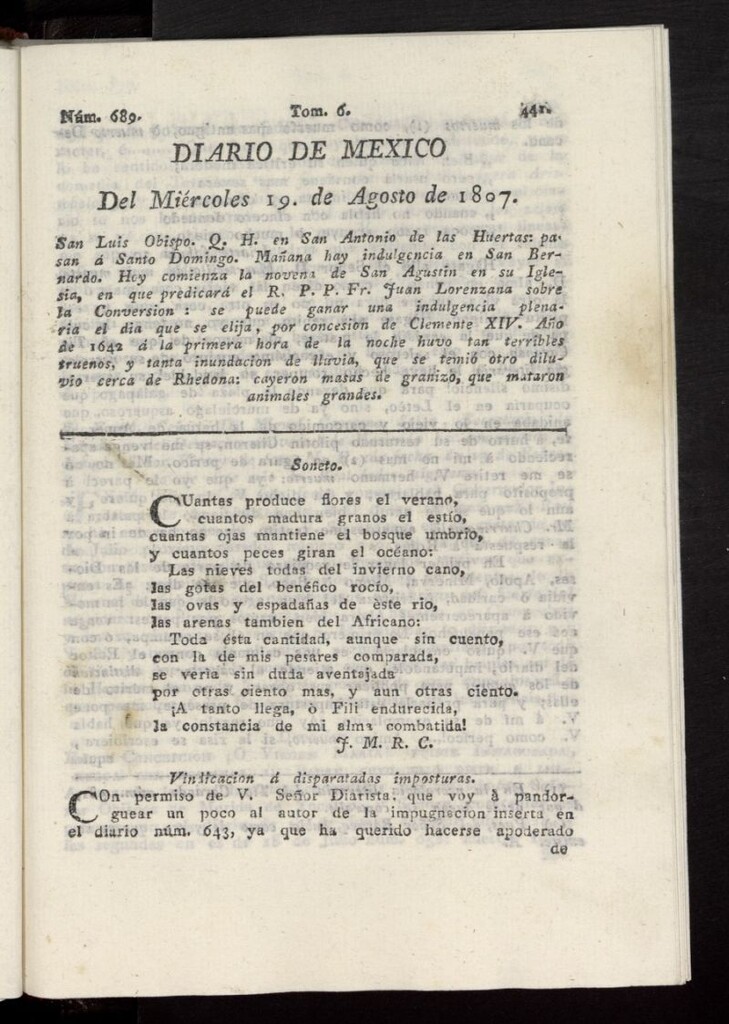 Núm. 689. Tom. 6. 441.
DIARIO DE MEXICO
Del Miércoles 19. de Agosto de 1807.
San Luis Obispo. Q. H. en San Antonio de las Huertas: pa-
san á Santo Domingo. Mañana hay indulgencia en San Ber-
nardo. Hoy comienza la novena de San Agustin en su Igle-
sia, en que predicará el R. P. P. Fr. Juan Lorenzana sobre
la Conversion: se puede ganar una indulgencia plena-
ria el dia que se elija, por concesion de Clemente XIV. Año
de 1642 á la primera hora de la noche huvo tan terribles
truenos, y tanta inundacion de lluvia, que se temió otro dilu-
vio cerca de Rhedona: cayeron masas de granizo, que mataron
animales grandes.
Soneto.
CUantas produce flores el verano,
cuantos madura granos el estío,
cuantas ojas mantiene el bosque umbrio,
y cuantos peces giran el océano:
Las nieves todas del invierno cano,
las gotas del benéfico rocío,
las ovas y espadañas de èste rio,
las arenas tambien del Africano:
Toda ésta cantidad, aunque sin cuento,
con la de mis pesares comparada,
se veria sin duda aventajada
por otras ciento mas, y aun otras ciento.
¡A tanto llega, ò Fili endurecida,
la constancia de mi alma combatida!
J. M. R. C.
Vindicacion á disparatadas imposturas.
COn permiso de V. Señor Diarista, que voy à pandor-
guear un poco al autor de la impugnacion inserta en
el diario núm. 643, ya que ha querido hacerse apoderado
de